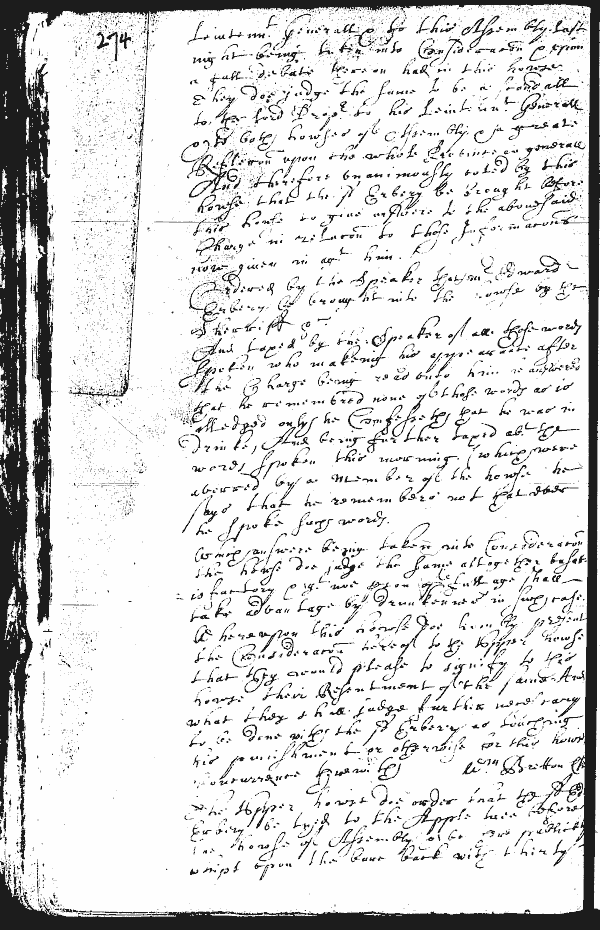 274
Leiutennt Generall & to this Assembly last
night being taken into Consideracon & upon
a full debate thereon had in this howse
They doe judge the same to be a scandall
to the Lord Propr to his Leiutennt Generall
& to both howses of Assembly & a greate
Reflecon upon the whole Province in generall
And therefore unanimously voted by this
howse that the sd Erbery be brought before
this howse to give answere to the abovesaid
Charge in relacon to those Informacons
now given in agt him.
Ordered by the Speaker that mr Edward
Erbery be brought into the howse by the
Sherriff &c
And taxed by the Speaker of all those words
spoken who makeing his appearance after
the Charge being read unto him answered
that he remembred none of those words as is
alledged onely he Confesseth that he was in
drinke, And being further taxed abt the
words spoken this morning (which were
averred by a Member of the howse he
says that he remembers not that ever
he spoke such words.
Which answere being taken into Consideracon
the howse doe judge the same altogether unsat
isfactory & that noe person of full age shall
take advantage by drunkennes in such case.
Whereupon this howse doe humbly present
the Consideracon hereof to the Upper howse
that they would please to signify to this
howse their Resentment of the same And
what they shall judge further necessary
to be done with the sd Erbery as touching
his punishment or otherwise for this howse
Concurrence herewith
Wm Bretton Clk
The Upper howse doe order that the sd Ed
Erbery be tyed to the Apple tree before
the howse of Assembly & be there publickly
whipt upon the bare back with thirty